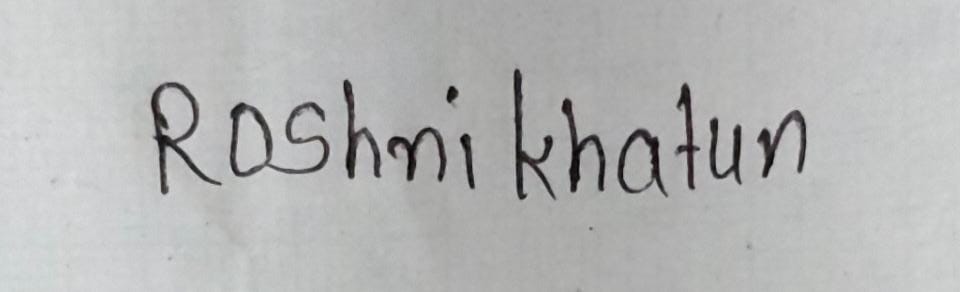 Roshni khatun